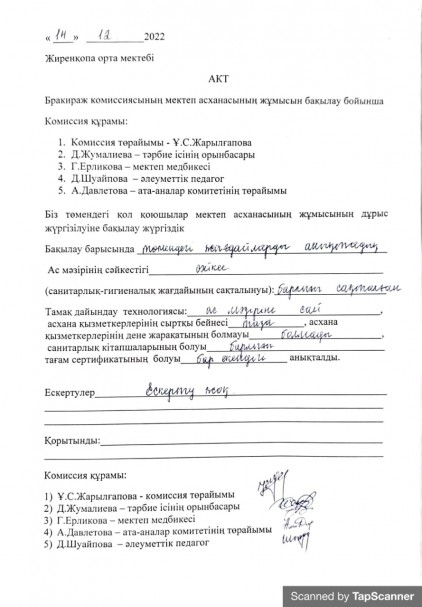 « 14 » 12 2022
Жиренқопа орта мектебі
АКТ
Бракираж комиссиясының мектеп асханасының жұмысын бақылау бойынша
Комиссия құрамы:
1. Комиссия төрайымы - Ұ.С.Жарылғапова
2. Д.Жумалиева – тәрбие ісінің орынбасары
3. Г.Ерликова – мектеп медбикесі
4. Д.Шуайпова – әлеуметтік педагог
5. А.Давлетова – ата-аналар комитетінің төрайымы
Біз төмендегі қол қоюшылар мектеп асханасының жұмысынын дұрыс
жүргізілуіне бақылау жүргіздік
Бақылау барысында төмендегі жағдайларды анықталдық
Ас мәзірінің сәйкестігі сәйкес
(санитарлық-гигиеналық жағдайының сақталуны): барлығы сақталған
Тамақ дайындау технологиясы: ас мәзіріне сай ,
асхана қызметкерлерінің сыртқы бейнесі таза , асхана
қызметкерлерінің дене жарақатының болмауы болмады ,
санитарлық кітапшаларының болуы барлығы ,
тағам сертификатының болуы бар екендігі анықталды.
Ескертулер Ескерту жоқ
Қорытынды:
Комиссия құрамы:
1) Ұ.С.Жарылғапова - комиссия төрайымы
2) Д.Жумалиева – тәрбие ісінің орынбасары
3) Г.Ерликова – мектеп медбикесі
4) А.Давлетова – ата-аналар комитетінің төрайымы
5) Д.Шуайпова – әлеуметтік педагог
Scanned by TapScanner